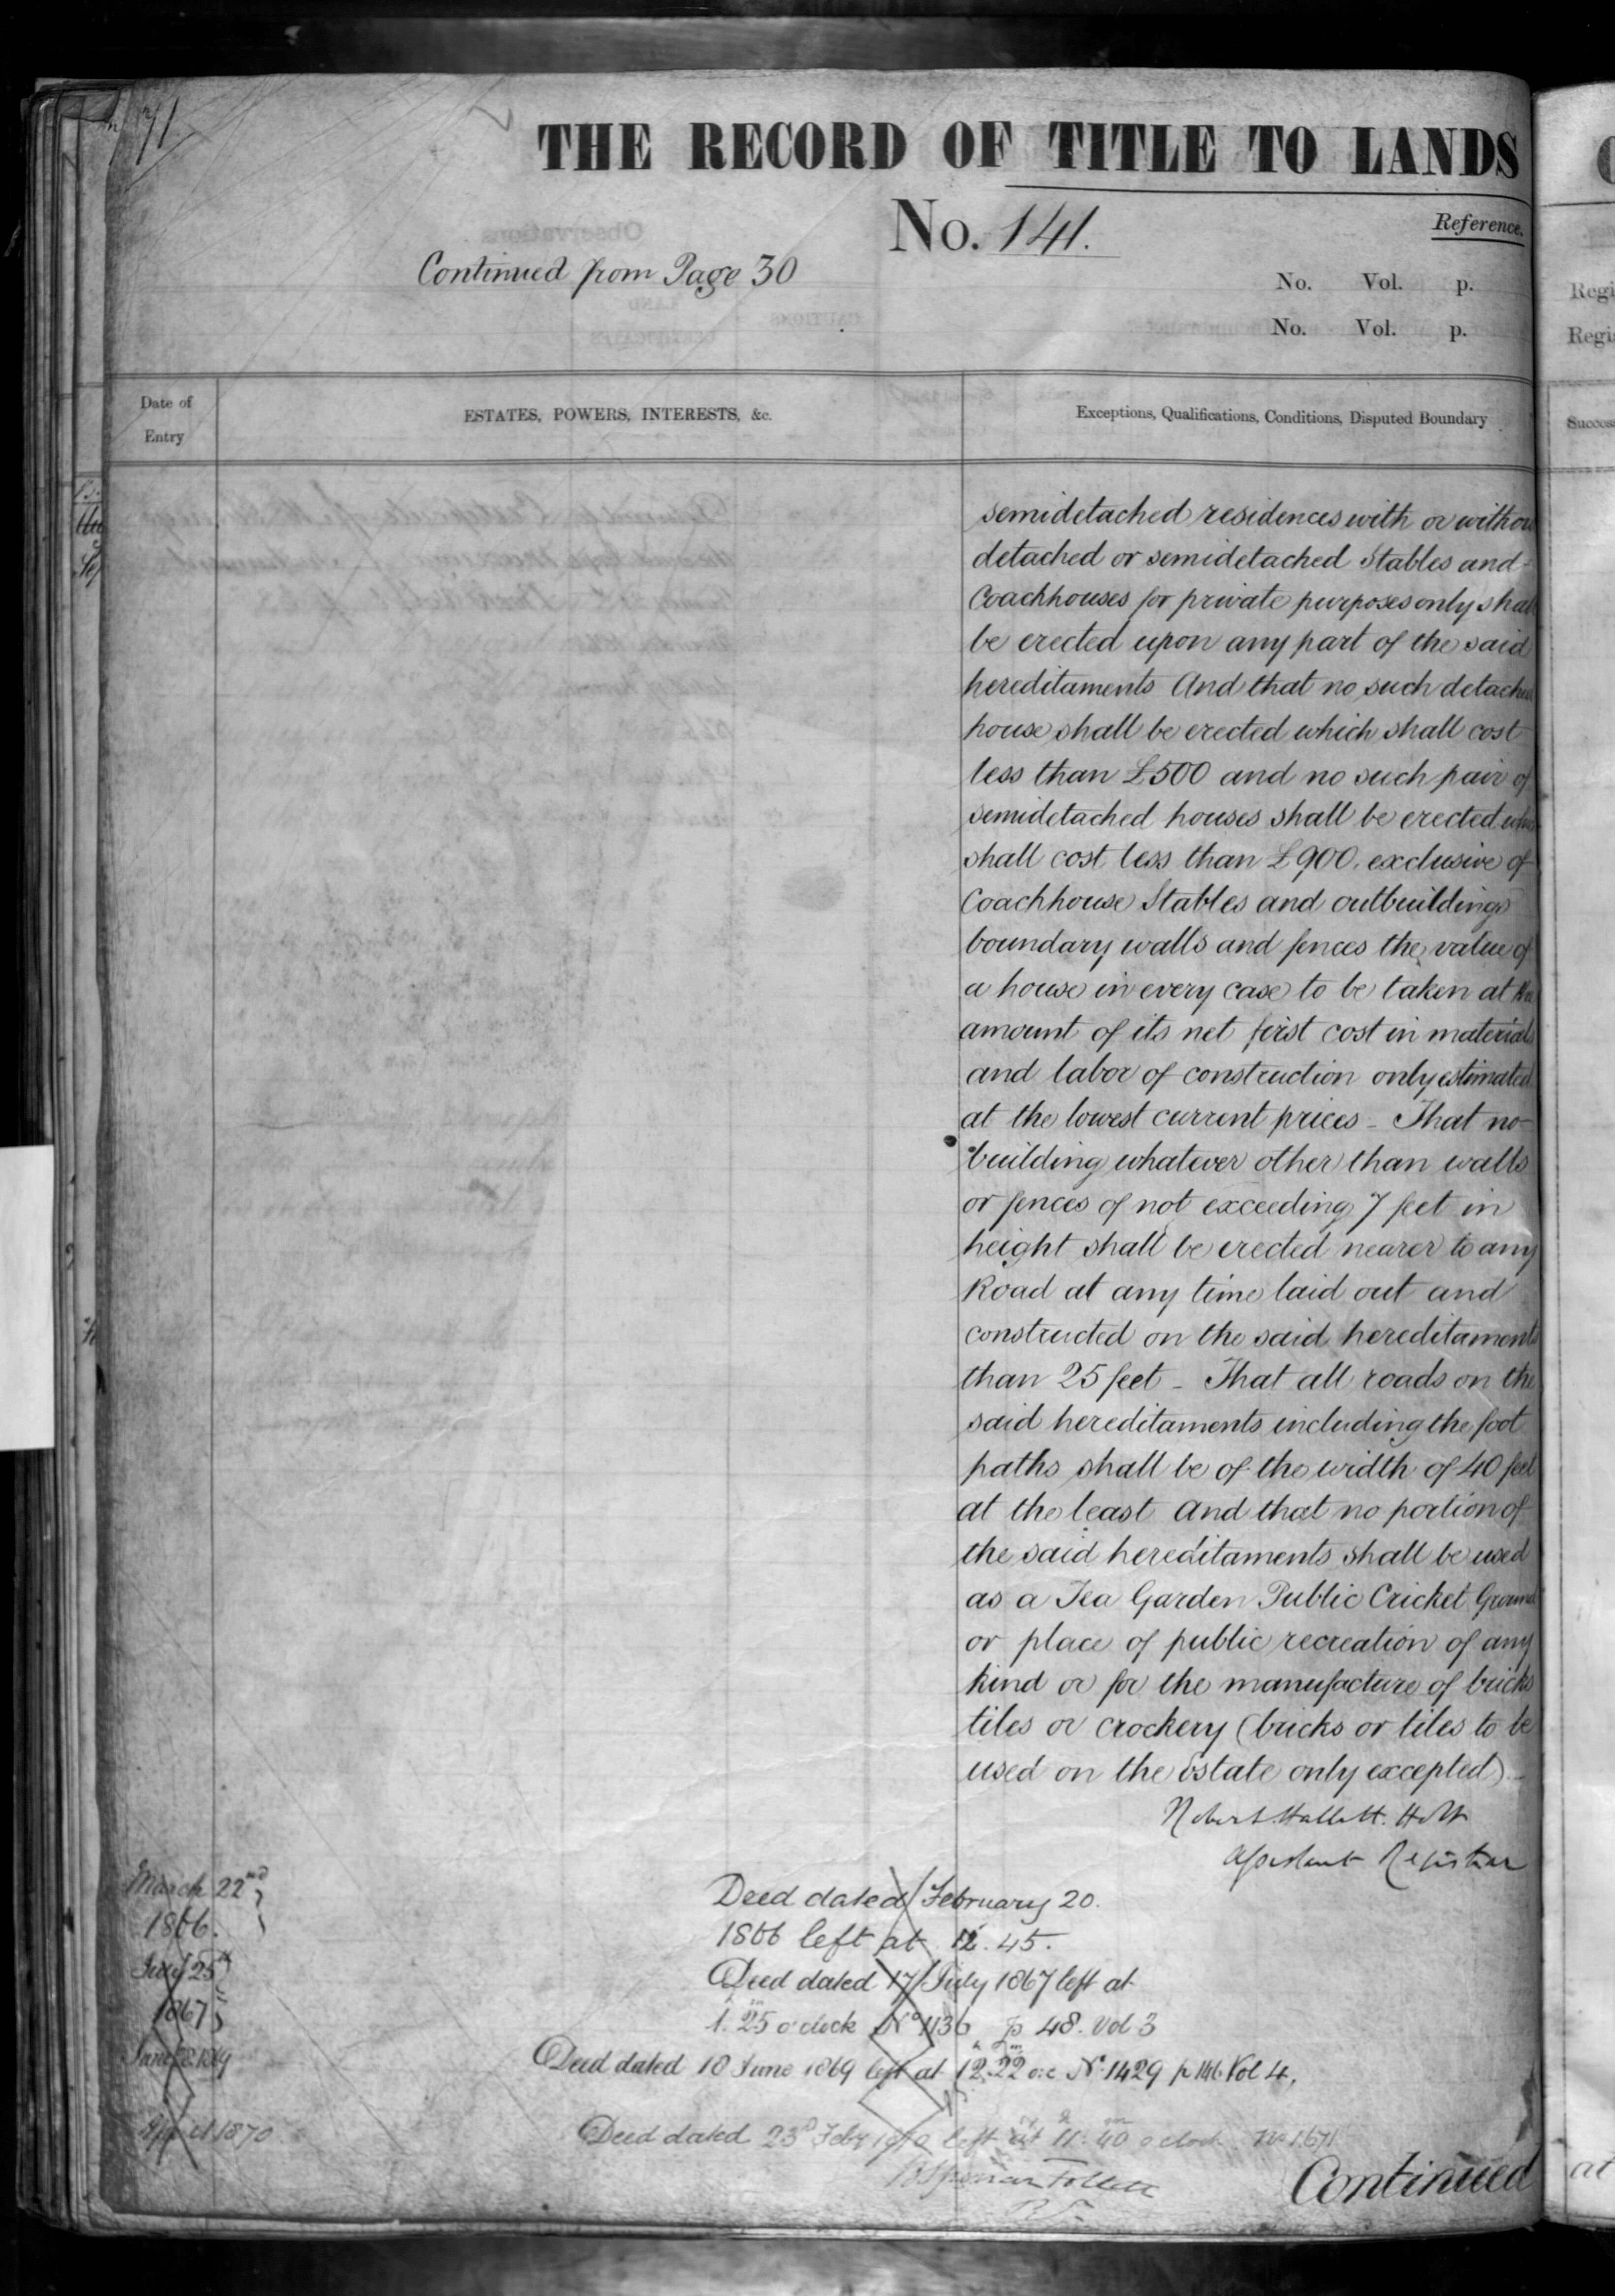 THE RECORD OF TITLE TO LANDS
No. 141.
Reference.
Continued from Page 30
No. Vol. p.
No. Vol. p.
Date of
Entry
ESTATES, POWERS, INTERESTS, &c.
Exceptions, Qualifications, Conditions, Disputed Boundary
semidetached residences with or withou
detached or semidetached Stables and
Coachhouses for private purposes only shal
be erected upon any part of the said
hereditaments And that no such detached
house shall be erected which shall cost
less than £500 and no such pair of
semidetached houses shall be erected
shall cost less than £900. exclusive of
Coachhouse Stables and outbuildings
boundary walls and fences the value of
a house in every case to be taken at the
amount of its net first cost in materials
and labor of construction only estimated
at the lowest current prices - That no
building whatever other than walls
or fences of not exceeding 7 feet in
height shall be erected nearer to any
Road at any time laid out and
constructed on the said hereditaments
than 25 feet - That all roads on the
said hereditaments including the foot
paths shall be of the width of 40 feet
at the least And that no portion of
the said hereditaments shall be used
as a Tea Garden Public Cricket Ground
or place of public recreation of any
kind or for the manufacture of bricks
tiles or crockery (bricks or tiles to be
used on the Estate only excepted) -
Robert Hallett Holt
Assistant Registrar
March 22nd
1866.
Deed dated February 20.
1866 left at 12.45.
July 25th
1867
Deed dated 17 July 1867 left at
1.25 o'clock No 1136 p 48. Vol 3
Deed dated 10 June 1869 left at 12.22 o.c No 1429 p 146 Vol 4.
1870
Deed dated 23d Feby 1870 left at 11.40 o'clock No 1671
Follett
Continued